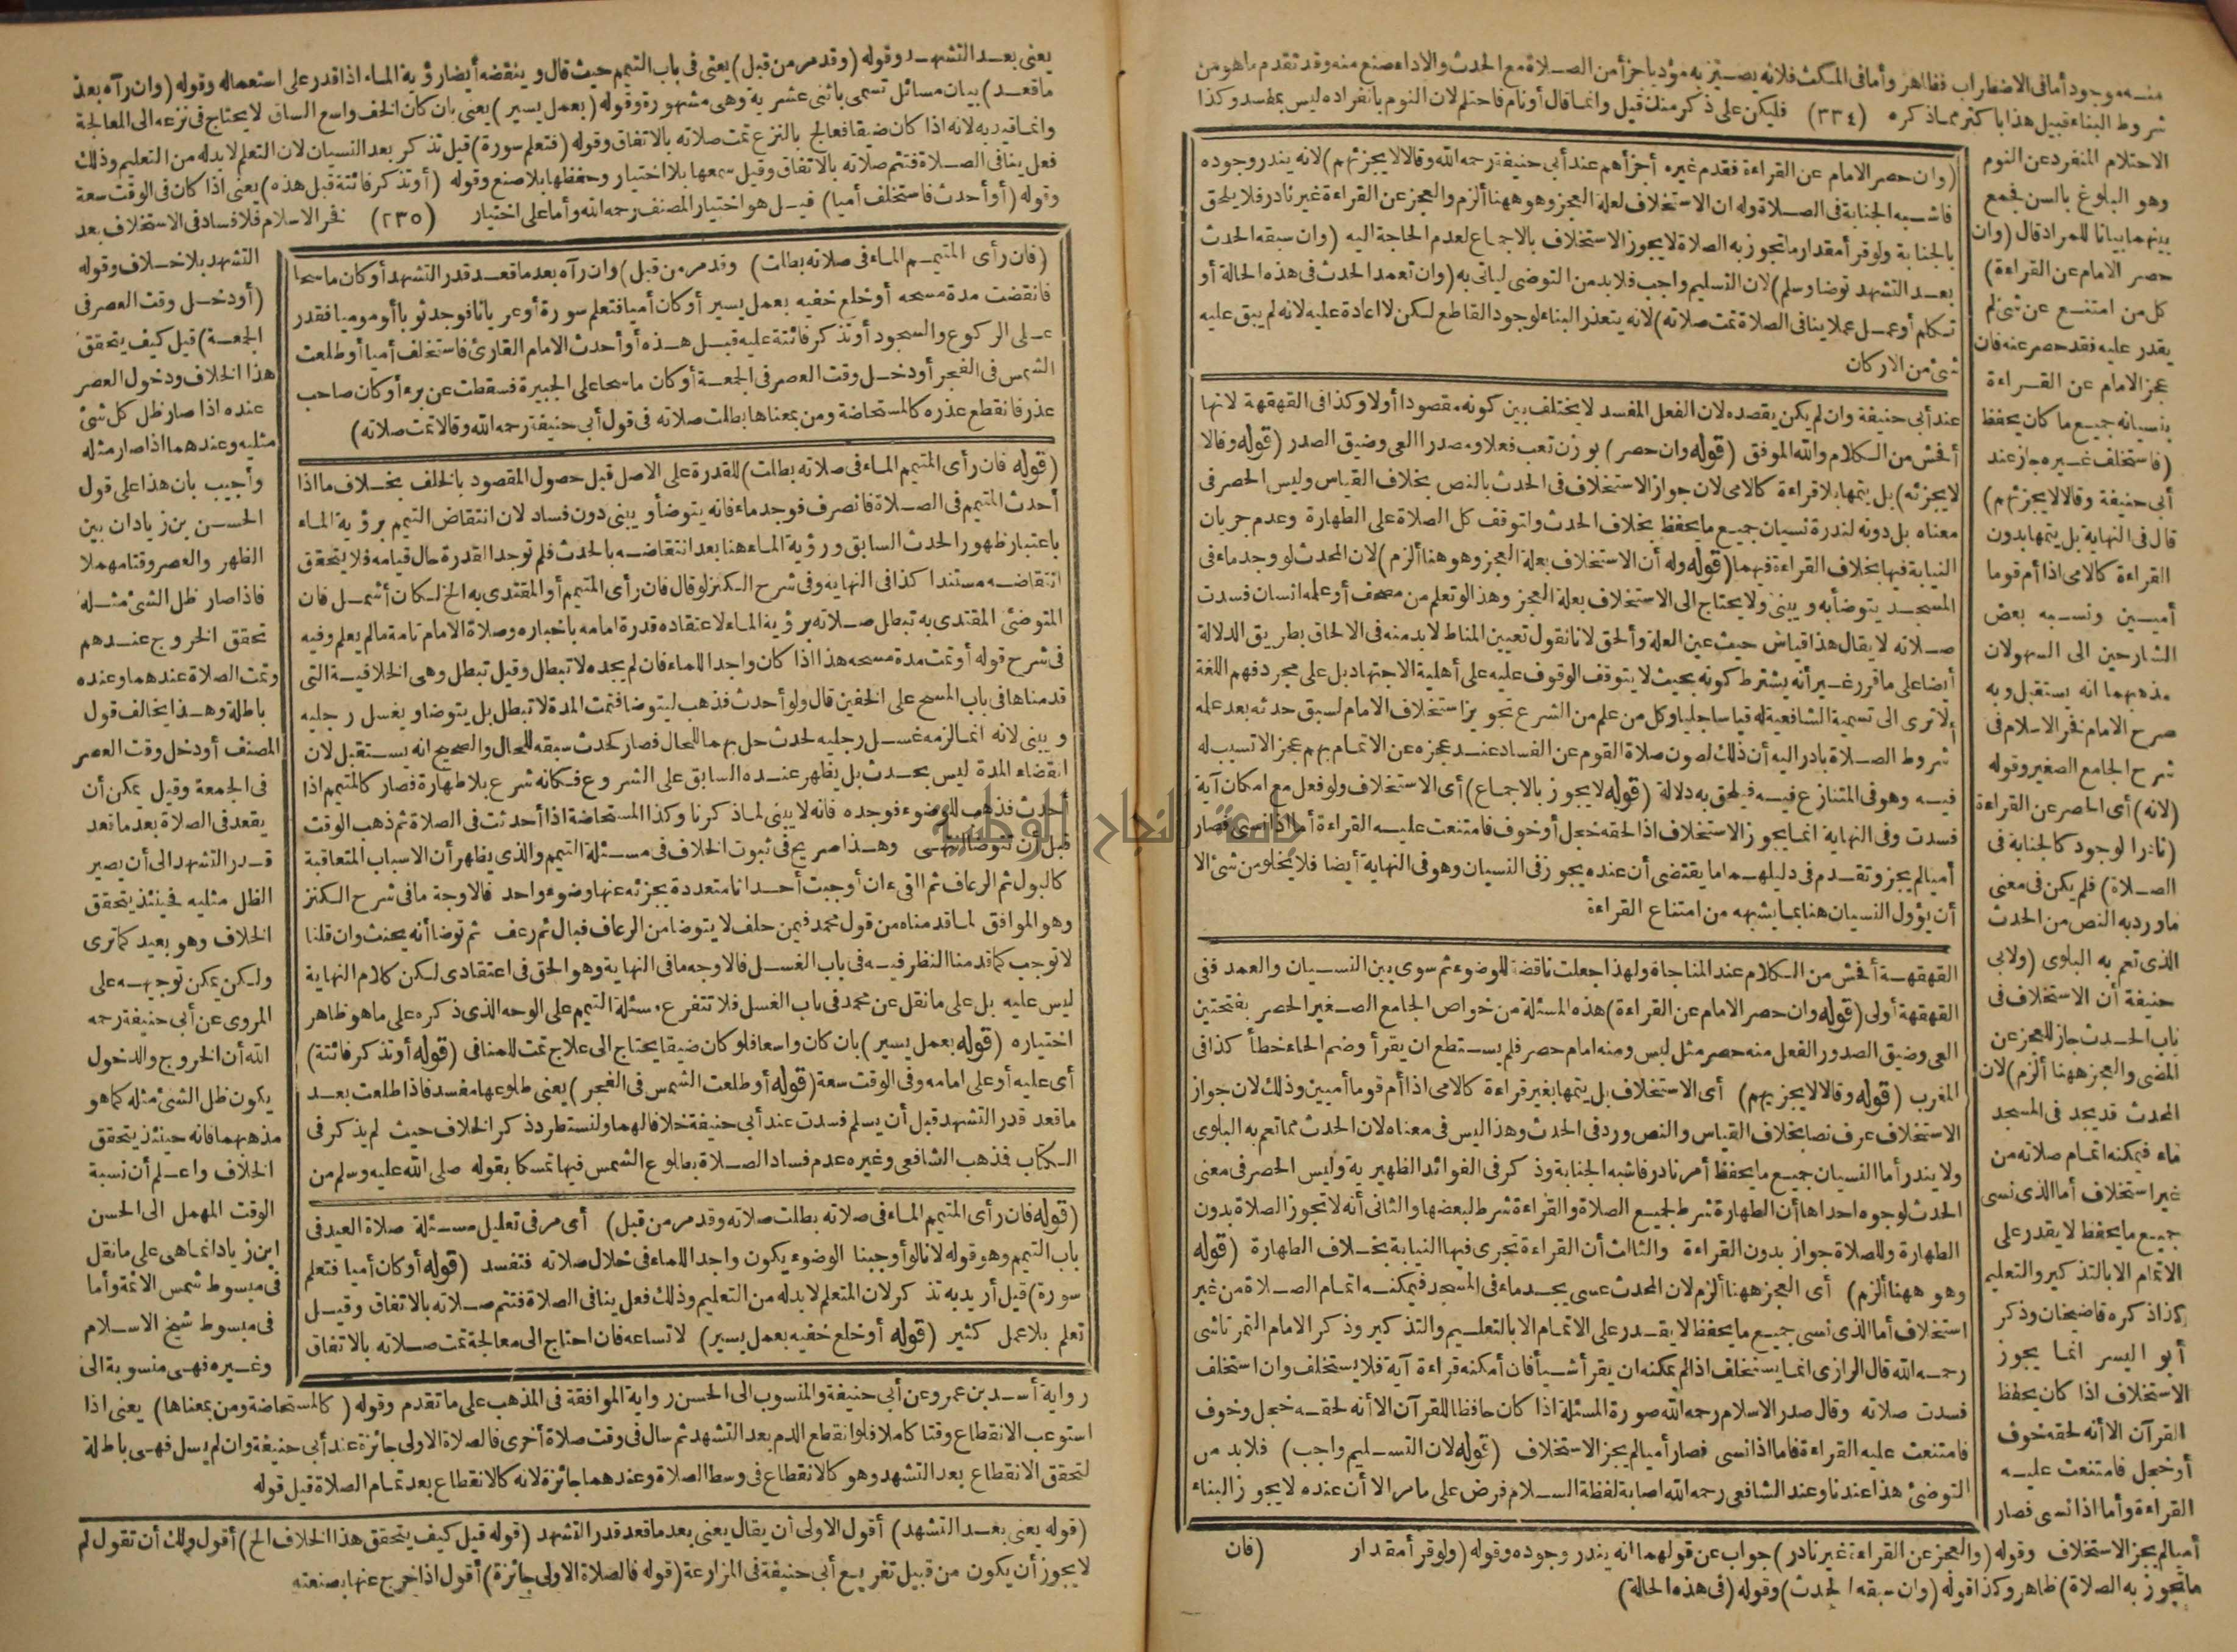 منه موجود أما فى الاضطراب فظاهر وأما فى المكث فلانه يصير به مؤديا جزأ من الصلاة مع الحدث والاداء صنع منه وقد تقدم ما هو من
شروط البناء قبيل هذا باكثر مما ذكره (٣٣٤) فليكن على ذكر منك قيل وانما قال أونام فاحتلم لان النوم بانفراده ليس بمفسد وكذا
الاحتلام المنفرد عن النوم
وهو البلوغ بالسن فجمع
بينهما بيانا للمراد قال (وان
حصر الامام عن القراءة)
كل من امتنع عن شئ لم
يقدر عليه فقد حصر عنه فان
عجز الامام عن القراءة
بنسيانه جميع ما كان يحفظ
(فاستخلف غيره جاز عند
أبى حنيفة وقالا لا يجزئهم)
قال فى النهاية بل يتمها بدون
القراءة كالامى اذا أم قوما
أميين ونسبه بعض
الشارحين الى السهولان
مذهبهما انه يستقبل وبه
صرح الامام فخر الاسلام فى
شرح الجامع الصغير وقوله
(لانه) أى الحصر عن القراءة
(نادر الوجود كالجنابة فى
الصلاة) فلم يكن فى معنى
ما ورد به النص من الحدث
الذى تعم به البلوى (ولابى
حنيفة أن الاستخلاف فى
باب الحدث جاز للعجز عن
المضى والعجز ههنا ألزم) لان
المحدث قد يجد فى المسجد
ماء فيمكنه اتمام صلاته من
غير استخلاف أما الذى نسى
جميع ما يحفظ لا يقدر على
الاتمام الا بالتذكير والتعليم
كذا ذكره قاضيخان وذكر
أبو اليسر انما يجوز
الاستخلاف اذا كان يحفظ
القرآن الا أنه لحقه خوف
أو خجل فامتنعت عليه
القراءة وأما اذا نسى فصار
(وان حصر الامام عن القراءة فقدم غيره أجزأهم عند أبى حنيفة رحمه الله وقالا لا يجزئهم) لانه يندر وجوده
فاشبه الجنابة فى الصلاة وله ان الاستخلاف لعلة العجز وهو ههنا ألزم والعجز عن القراءة غير نادر فلا يلحق
بالجنابة ولو قرأ مقدار ما تجوز به الصلاة لا يجوز الاستخلاف بالاجماع لعدم الحاجة اليه (وان سبقه الحدث
بعد التشهد توضأ وسلم) لان التسليم واجب فلا بد من التوضى لياتى به (وان تعمد الحدث فى هذه الحالة أو
تكلم أو عمل عملا ينافى الصلاة تمت صلاته) لانه يتعذر البناء لوجود القاطع لكن لا اعادة عليه لانه لم يبق عليه
شئ من الاركان
عند أبى حنيفة وان لم يكن يقصده لان الفعل المفسد لا يختلف بين كونه مقصودا أولا وكذا فى القهقهة لانها
أفحش من الكلام والله الموفق (قوله وان حصر) بوزن تعب فعلا ومصدرا العى وضيق الصدر (قوله وقالا
لا يجزئه) بل يتمها بلا قراءة كالامى لان جواز الاستخلاف فى الحدث بالنص بخلاف القياس وليس الحصر فى
معناه بل دونه لندرة نسيان جميع ما يحفظ بخلاف الحدث ولتوقف كل الصلاة على الطهارة وعدم جريان
النيابة فيها بخلاف القراءة فيهما (قوله وله أن الاستخلاف بعلة العجز وهو هنا ألزم) لان المحدث لو وجد ماء فى
المسجد يتوضأ به ويبنى ولا يحتاج الى الاستخلاف بعلة العجز وهذا لو تعلم من مصحف أو علمه انسان فسدت
صلاته لا يقال هذا قياس حيث عين العلة وألحق لانا نقول تعيين المناط لا بد منه فى الالحاق بطريق الدلالة
أيضا على ما قرر غير أنه يشترط كونه بحيث لا يتوقف الوقوف عليه على أهلية الاجتهاد بل على مجرد فهم اللغة
ألا ترى الى تسمية الشافعية له قياسا جليا وكل من علم من الشرع تجويز استخلاف الامام لسبق حدثه بعد علمه
شروط الصلاة بادر اليه أن ذلك لصون صلاة القوم عن الفساد عند عجزه عن الاتمام بهم عجز الا تسبب له
فيه وهو فى المتنازع فيه فيلحق به دلالة (قوله لا يجوز بالاجماع) أى الاستخلاف ولو فعل مع امكان آية
فسدت وفى النهاية انما يجوز الاستخلاف اذا لحقه خجل أو خوف فامتنعت عليه القراءة أما اذا نسى فصار
أميا لم يجز وتقدم فى دليلهما ما يقتضى أن عنده يجوز فى النسيان وهو فى النهاية أيضا فلا يخلو من شئ الا
أن يؤول النسيان هنا بما يشبهه من امتناع القراءة
القهقهة أفحش من الكلام عند المناجاة ولهذا جعلت ناقضة للوضوء ثم سوى بين النسيان والعمد ففى
القهقهة أولى (قوله وان حصر الامام عن القراءة) هذه المسئلة من خواص الجامع الصغير الحصر بفتحتين
العى وضيق الصدر والفعل منه حصر مثل لبس ومنه امام حصر فلم يستطع ان يقرأ وضم الحاء خطأ كذا فى
المغرب (قوله وقالا لا يجزيهم) أى الاستخلاف بل يتمها بغير قراءة كالامى اذا أم قوما أميين وذلك لان جواز
الاستخلاف عرف نصا بخلاف القياس والنص ورد فى الحدث وهذا ليس فى معناه لان الحدث مما تعم به البلوى
ولا يندر أما النسيان جميع ما يحفظ أمر نادر فاشبه الجنابة وذكر فى الفوائد الظهيرية وليس الحصر فى معنى
الحدث لوجوه احداها أن الطهارة شرط لجميع الصلاة والقراءة شرط لبعضها والثانى أنه لا تجوز الصلاة بدون
الطهارة وللصلاة جواز بدون القراءة والثالث أن القراءة تجرى فيها النيابة بخلاف الطهارة (قوله
وهو ههنا ألزم) أى العجز ههنا ألزم لان المحدث عسى يجد ماء فى المسجد فيمكنه اتمام الصلاة من غير
استخلاف أما الذى نسى جميع ما يحفظ لا يقدر على الاتمام الا بالتعليم والتذكير وذكر الامام التمرتاشى
رحمه الله قال الرازى انما يستخلف اذا لم يمكنه ان يقرأ شيأ فان أمكنه قراءة آية فلا يستخلف وان استخلف
فسدت صلاته وقال صدر الاسلام رحمه الله صورة المسئلة اذا كان حافظا للقرآن الا أنه لحقه خجل وخوف
فامتنعت عليه القراءة فاما اذا نسى فصار أميا لم يجز الاستخلاف (قوله لان التسليم واجب) فلا بد من
التوضئ هذا عندنا وعند الشافعى رحمه الله اصابة لفظة السلام فرض على ما مر الا أن عنده لا يجوز البناء
أميا لم يجز الاستخلاف وقوله (والعجز عن القراءة غير نادر) جواب عن قولهما انه يندر وجوده وقوله (ولو قرأ مقدار (فان
ما تجوز به الصلاة) ظاهر وكذا قوله (وان سبقه الحدث) وقوله (فى هذه الحالة)
يعنى بعد التشهد وقوله (وقد مر من قبل) يعنى فى باب التيمم حيث قال وينقضه أيضا رؤية الماء اذا قدر على استعماله وقوله (وان رآه بعد
ما قعد) بيان مسائل تسمى باثنى عشرية وهى مشهورة وقوله (بعمل يسير) يعنى بان كان الخف واسع الساق لا يحتاج فى نزعه الى المعالجة
وانما قيد به لانه اذا كان ضيقا فعالج بالنزع تمت صلاته بالاتفاق وقوله (فتعلم سورة) قيل تذكر بعد النسيان لان التعلم لا بد له من التعليم وذلك
فعل ينافى الصلاة فتتم صلاته بالاتفاق وقيل سمعها بلا اختيار وحفظها بلا صنع وقوله (أو تذكر فائتة قبل هذه) يعنى اذا كان فى الوقت سعة
وقوله (أو أحدث فاستخلف أميا) قيل هو اختيار المصنف رحمه الله وأما على اختيار (٢٣٥) فخر الاسلام فلا فساد فى الاستخلاف بعد
التشهد بلا خلاف وقوله
(أو دخل وقت العصر فى
الجمعة) قيل كيف يتحقق
هذا الخلاف ودخول العصر
عنده اذا صار ظل كل شئ
مثليه وعندهما اذا صار مثله
وأجيب بان هذا على قول
الحسن بن زياد ان بين
الظهر والعصر وقتا مهملا
فاذا صار ظل الشئ مثله
تحقق الخروج عندهم
وتمت الصلاة عندهما وعنده
باطلة وهذا يخالف قول
المصنف أو دخل وقت العصر
فى الجمعة وقيل يمكن أن
يقعد فى الصلاة بعد ما قعد
قدر التشهد الى أن يصير
الظل مثليه فحينئذ يتحقق
الخلاف وهو بعيد كما ترى
ولكن يمكن توجيهه على
المروى عن أبى حنيفة رحمه
الله أن الخروج والدخول
يكون ظل الشئ مثله كما هو
مذهبهما فانه حينئذ يتحقق
الخلاف واعلم أن نسبة
الوقت المهمل الى الحسن
ابن زياد انما هى على ما نقل
فى مبسوط شمس الائمة وأما
فى مبسوط شيخ الاسلام
وغيره فهى منسوبة الى
(فان رأى المتيمم الماء فى صلاته بطلت) وقد مر من قبل) وان رآه بعد ما قعد قدر التشهد أو كان ماسحا
فانقضت مدة مسحه أو خلع خفيه بعمل يسير أو كان أميا فتعلم سورة أو عريانا فوجد ثوبا أو موميا فقدر
على الركوع والسجود أو تذكر فائتة عليه قبل هذه أو أحدث الامام القارئ فاستخلف أميا أو طلعت
الشمس فى الفجر أو دخل وقت العصر فى الجمعة أو كان ماسحا على الجبيرة فسقطت عن برء أو كان صاحب
عذر فانقطع عذره كالمستحاضة ومن بمعناها بطلت صلاته فى قول أبى حنيفة رحمه الله وقالا تمت صلاته)
(قوله فان رأى المتيمم الماء فى صلاته بطلت) للقدرة على الاصل قبل حصول المقصود بالخلف بخلاف ما اذا
أحدث المتيمم فى الصلاة فانصرف فوجد ماء فانه يتوضأ ويبنى دون فساد لان انتقاض التيمم برؤية الماء
باعتبار ظهور الحدث السابق ورؤية الماء هنا بعد انتقاضه بالحدث فلم توجد القدرة حال قيامه فلا يتحقق
انتقاضه مستندا كذا فى النهاية وفى شرح الكنز لو قال فان رأى المتيمم أو المقتدى به الخ لكان أشمل فان
المتوضئ المقتدى به تبطل صلاته برؤية الماء لاعتقاده قدرة امامه باخباره وصلاة الامام تامة ما لم يعلم وفيه
فى شرح قوله أو تمت مدة مسحه هذا اذا كان واجدا للماء فان لم يجده لا تبطل وقيل تبطل وهى الخلافية التى
قدمناها فى باب المسح على الخفين قال ولو أحدث فذهب ليتوضأ فتمت المدة لا تبطل بل يتوضا ويغسل رجليه
ويبنى لانه انما لزمه غسل رجليه لحدث حل بهما للحال فصار كحدث سبقه للحال والصحيح انه يستقبل لان
انقضاء المدة ليس بحدث بل يظهر عنده السابق على الشروع فكانه شرع بلا طهارة فصار كالمتيمم اذا
أحدث فذهب للوضوء فوجده فانه لا يبنى لما ذكرنا وكذا المستحاضة اذا أحدثت فى الصلاة ثم ذهب الوقت
قبل أن تتوضا انتهى وهذا صريح فى ثبوت الخلاف فى مسئلة التيمم والذى يظهر أن الاسباب المتعاقبة
كالبول ثم الرعاف ثم القىء ان أوجبت أحداثا متعددة يجزئه عنها وضوء واحد فالاوجه ما فى شرح الكنز
وهو الموافق لما قدمناه من قول محمد فيمن حلف لا يتوضا من الرعاف فبال ثم رعف ثم توضا أنه يحنث وان قلنا
لا توجب كما قدمنا النظر فيه فى باب الغسل فالاوجه ما فى النهاية وهو الحق فى اعتقادى لكن كلام النهاية
ليس عليه بل على ما نقل عن محمد فى باب الغسل فلا تتفرع مسئلة التيمم على الوجه الذى ذكره على ما هو ظاهر
اختياره (قوله بعمل يسير) بان كان واسعا فلو كان ضيقا يحتاج الى علاج تمت للمنافى (قوله أو تذكر فائتة)
أى عليه أو على امامه وفى الوقت سعة (قوله أو طلعت الشمس فى الفجر) يعنى طلوعها مفسد فاذا طلعت بعد
ما قعد قدر التشهد قبل أن يسلم فسدت عند أبى حنيفة خلافا لهما ولنستطرد ذكر الخلاف حيث لم يذكر فى
الكتاب فذهب الشافعى وغيره عدم فساد الصلاة بطلوع الشمس فيها تمسكا بقوله صلى الله عليه وسلم من
(قوله فان رأى المتيمم الماء فى صلاته بطلت صلاته وقد مر من قبل) أى مر فى تعليل مسئلة صلاة العيد فى
باب التيمم وهو قوله لانا لو أوجبنا الوضوء يكون واجدا للماء فى خلال صلاته فتفسد (قوله أو كان أميا فتعلم
سورة) قيل أريد به تذكر لان المتعلم لا بد له من التعليم وذلك فعل ينافى الصلاة فتتم صلاته بالاتفاق وقيل
تعلم بلا عمل كثير (قوله أو خلع خفيه بعمل يسير) لاتساعه فان احتاج الى معالجة تمت صلاته بالاتفاق
رواية أسد بن عمرو عن أبى حنيفة والمنسوب الى الحسن رواية الموافقة فى المذهب على ما تقدم وقوله (كالمستحاضة ومن بمعناها) يعنى اذا
استوعب الانقطاع وقتا كاملا فلو انقطع الدم بعد التشهد ثم سال فى وقت صلاة أخرى فالصلاة الاولى جائزة عند أبى حنيفة وان لم يسل فهى باطلة
لتحقق الانقطاع بعد التشهد وهو كالانقطاع فى وسط الصلاة وعندهما جائزة لانه كالانقطاع بعد تمام الصلاة قيل قوله
(قوله يعنى بعد التشهد) أقول الاولى أن يقال يعنى بعد ما قعد قدر التشهد (قوله قيل كيف يتحقق هذا الخلاف الخ) أقول ولك أن تقول لم
لا يجوز أن يكون من قبيل تفريع أبى حنيفة فى المزارعة (قوله فالصلاة الاولى جائزة) أقول اذا خرج عنها بصنعته
جامعة النجاح الوطنية